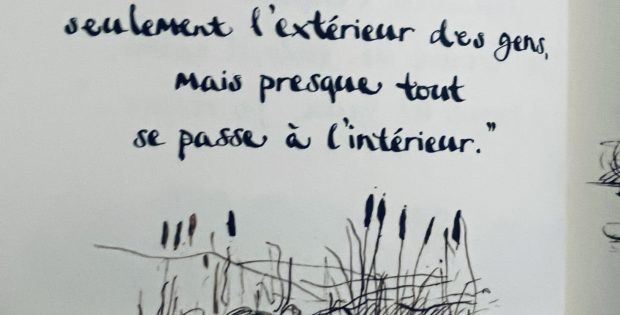 seulement l'extérieur des gens,
mais presque tout
se passe à l'intérieur."